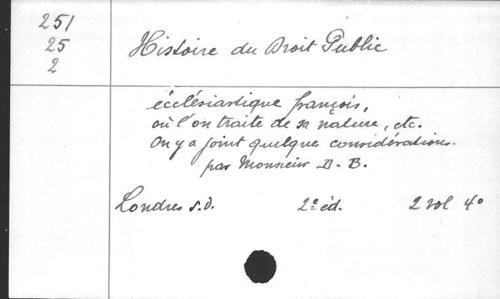 251
25
2
Histoire du Droit Public
écclésiastique françois,
où l'on traite de sa nature, etc.
On y a joint quelque considérations.
par Monsieur D. B.
Londres s.d. 2e éd. 2 vol 4o